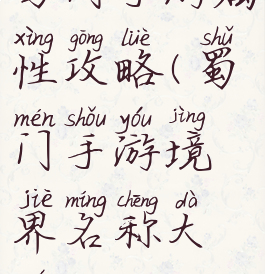 xìng gōng lüè shǔ
性攻略(蜀
mén shǒu yóu jìng
门手游境
jiè míng chēng dà
界名称大